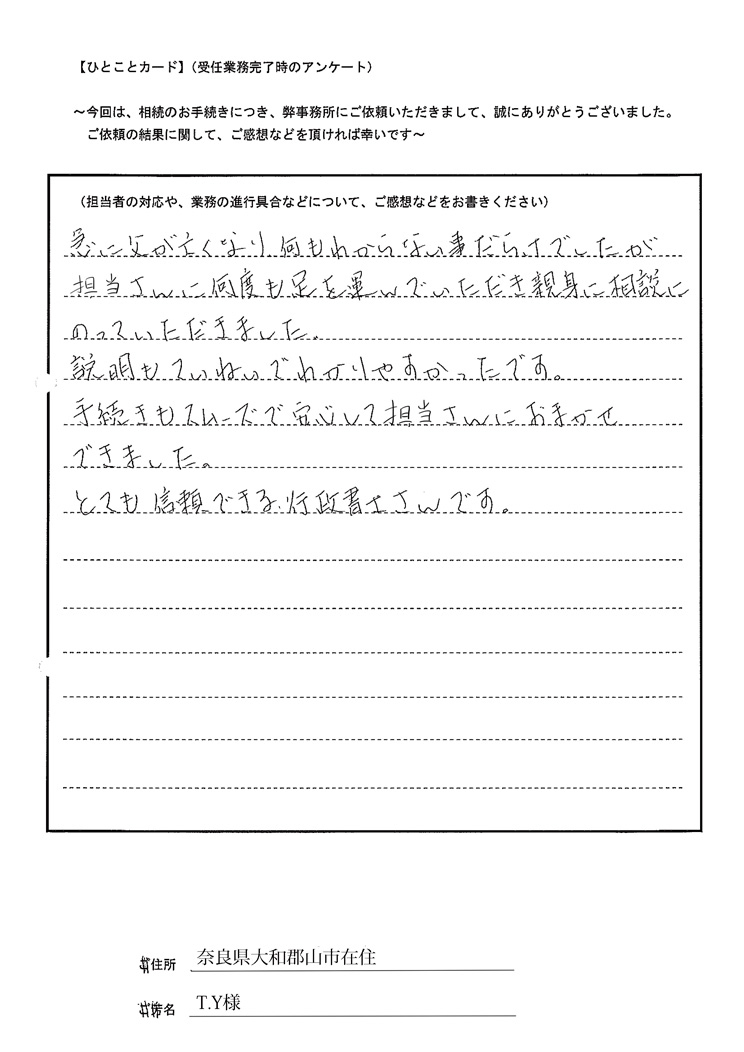 【ひとことカード】（受任業務完了時のアンケート）
～今回は、相続のお手続きにつき、弊事務所にご依頼いただきまして、誠にありがとうございました。
ご依頼の結果に関して、ご感想などを頂ければ幸いです～
（担当者の対応や、業務の進行具合などについて、ご感想などをお書きください）
急に父が亡くなり何もわからない事だらけでしたが
担当さんに何度も足を運んでいただき親身に相談に
のっていただきました。
説明もていねいでわかりやすかったです。
手続きもスムーズで安心して担当さんにおまかせ
できました。
とても信頼できる行政書士さんです。
住所 奈良県大和郡山市在住
名 T.Y様